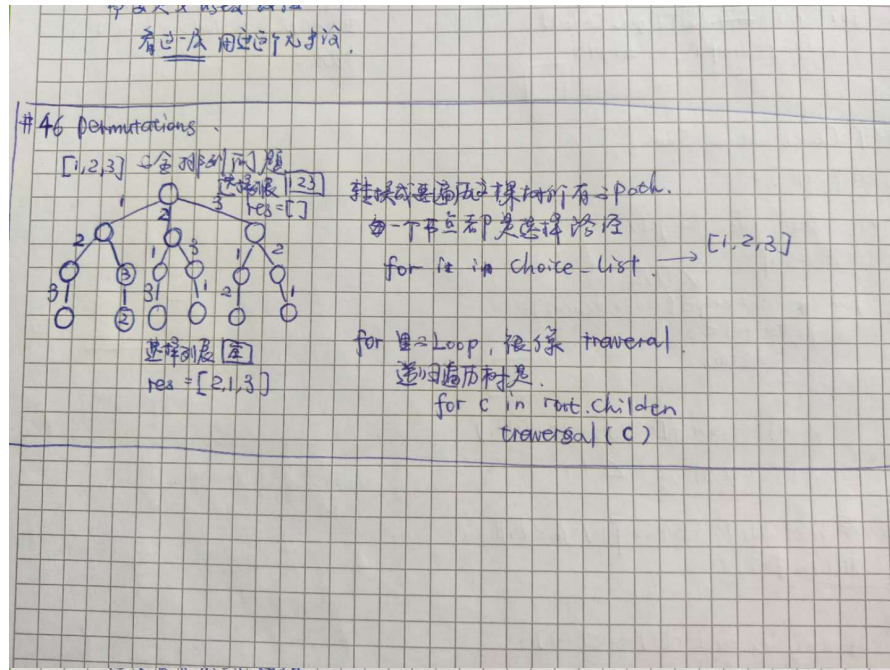 看这一层 用过这个元素没.
#46 permutations.
[1,2,3] 全排列问题
选择列表 [1 2 3]
res=[]
1 2 3
2 1 3 2
3 3 1 1
3 1 2 1
2
选择列表 空
res = [2,1,3]
转换成要遍历这棵树所有 path.
每一个节点都是选择路径
for i in choice-list. → [1,2,3]
for 里 Loop, 很像 traversal.
递归遍历树是.
for c in root.childen
traversal(c)